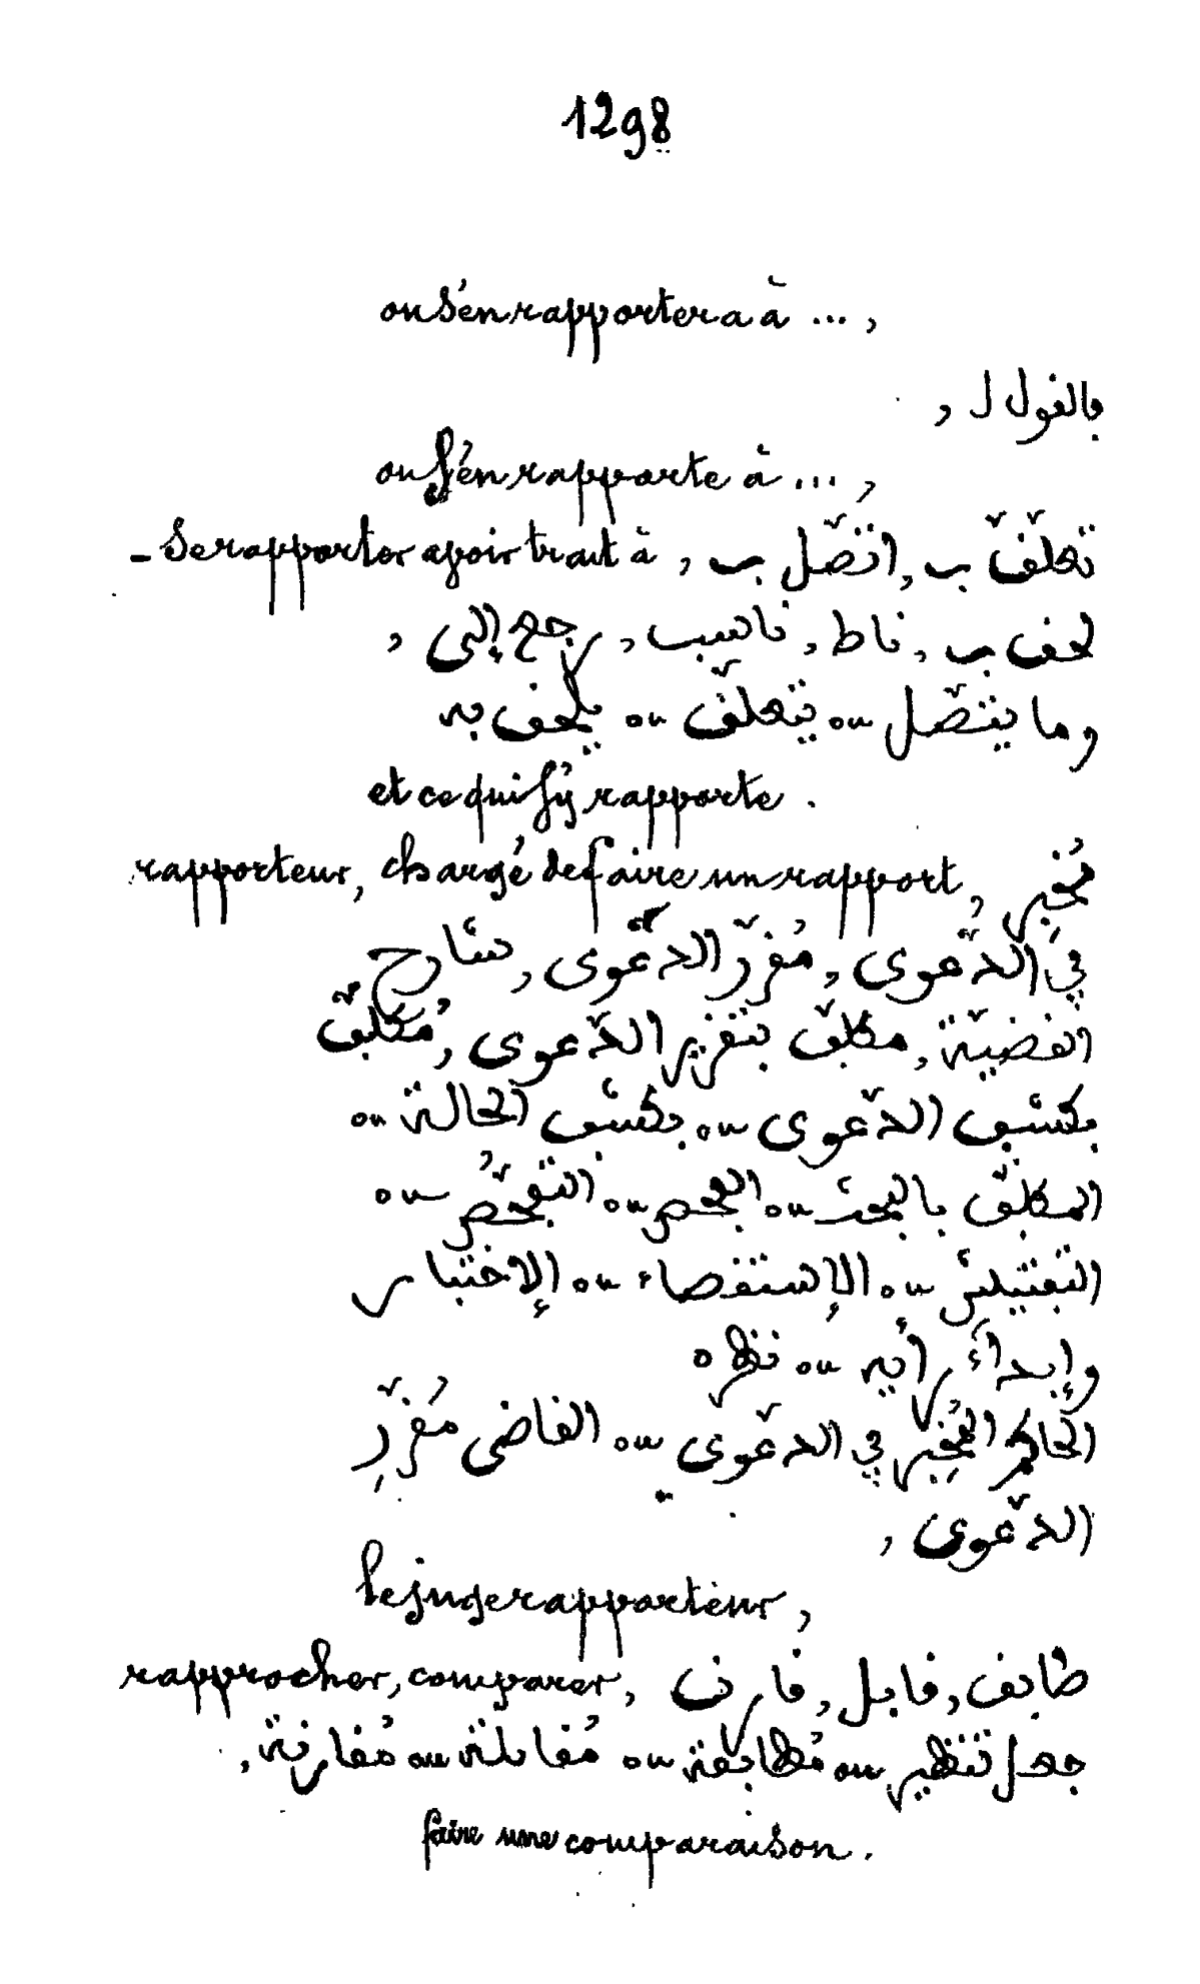 1298
on s'en rapportera à ...,
بالقول ل ,
on s'en rapporte à ...,
- Se rapporter avoir trait à , تعلّق ب , اتّصل ب ,
لحق ب , ناط , ناسب , رجع إلى ,
وما يتّصل ou يتعلّق ou يلحق به
et ce qui s'y rapporte .
rapporteur, chargé de faire un rapport , مُخْبِر
في الدّعوى , مُقرّر الدّعوى , شارح
القضيّة , مكلّف بتقرير الدّعوى , مُكلّف
بكشف الدّعوى ou بكشف الحالة ou
المكلّف بالبحث ou الفحص ou التفحّص ou
التفتيش ou الإستقصاء ou الإختبار
وإبداء رأيه ou نظره
الحاكم المُخْبِر في الدّعوى ou القاضى مُقرّر
الدّعوى ,
le juge rapporteur ,
rapprocher, comparer, طابق , قابل , قارن
جعل تنظير ou مُطابقة ou مُقابلة ou مُقارنة ,
faire une comparaison .